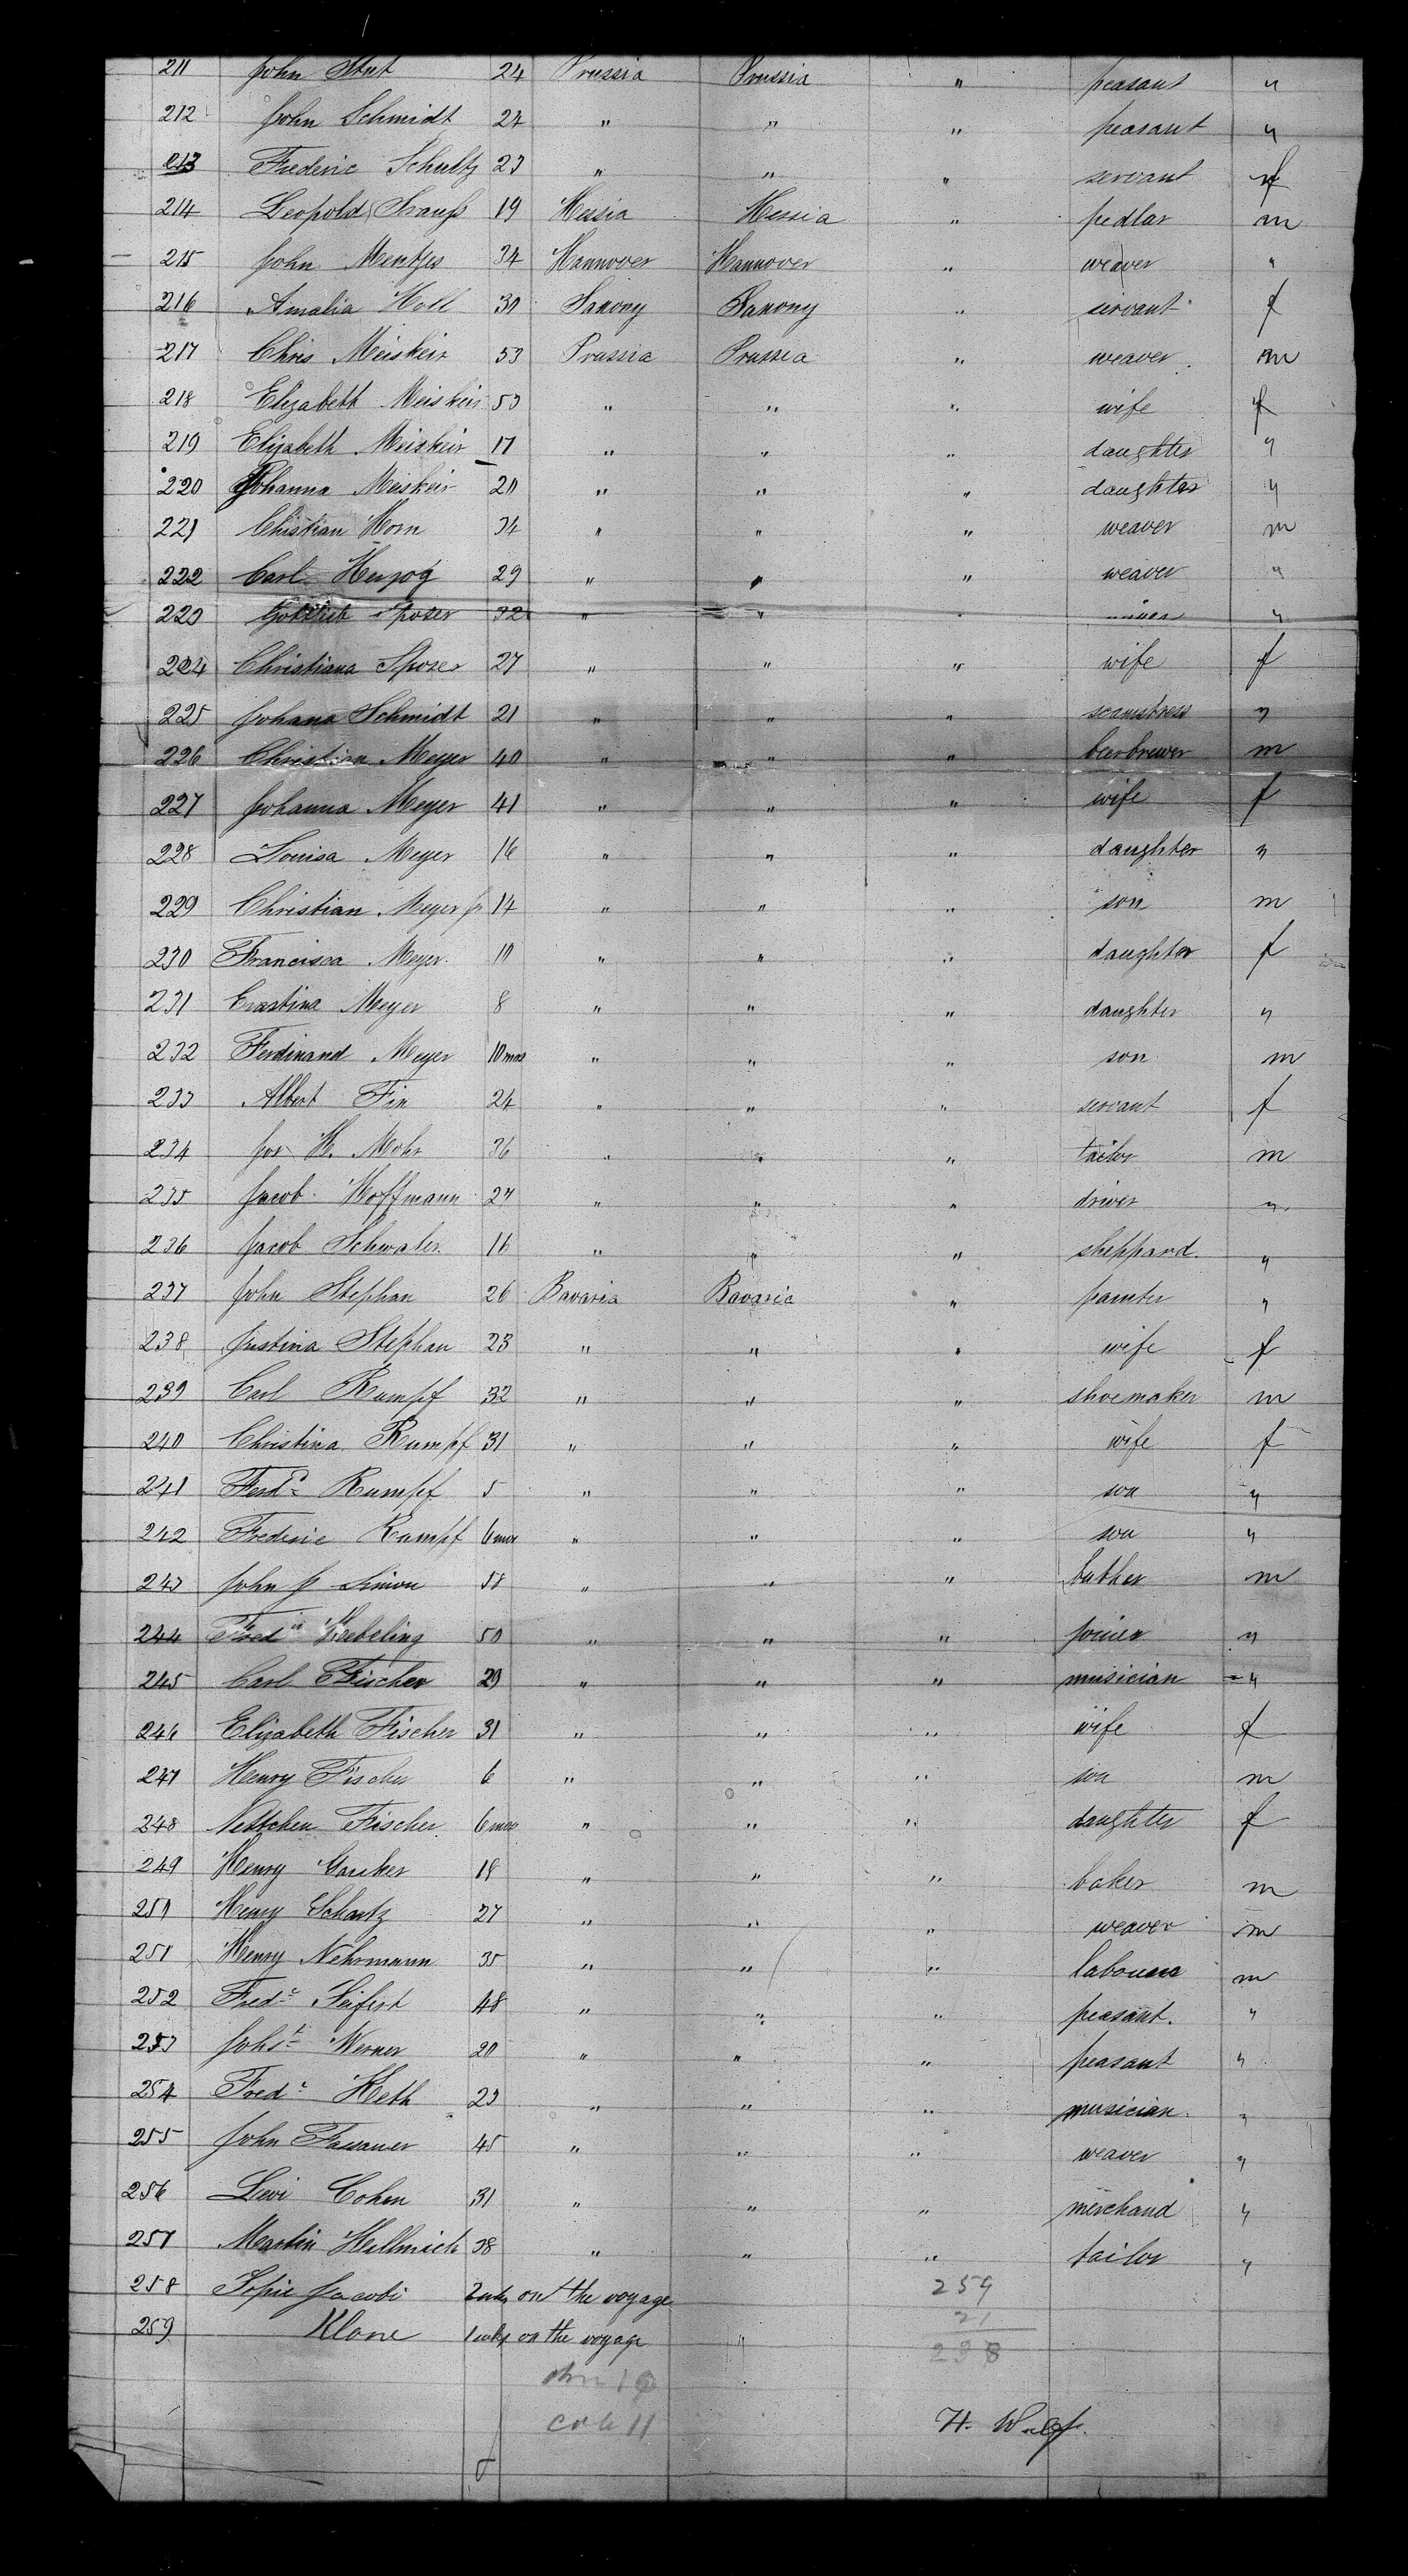 211 John Stut 24 Prussia Prussia " peasant "
212 John Schmidt 24 " " " peasant "
213 Frederic Schultz 23 " " " servant f
214 Leopold Strauss 19 Hessia Hessia " pedlar m
215 John Mentjes 34 Hannover Hannover " weaver "
216 Amalia Holl 30 Saxony Saxony " servant f
217 Chris Meiskeir 53 Prussia Prussia " weaver m
218 Elizabeth Meiskeir 53 " " " wife f
219 Elizabeth Meiskeir 17 " " " daughter "
220 Johanna Meiskeir 20 " " " daughter "
221 Christian Horn 34 " " " weaver m
222 Carl Herzog 29 " " " weaver "
223 Gottlieb Sposer 32 " " " "
224 Christiana Sposer 27 " " " wife f
225 Johana Schmidt 21 " " " seamstress "
226 Christian Meyer 40 " " " beerbrewer m
227 Johanna Meyer 41 " " " wife f
228 Louisa Meyer 16 " " " daughter "
229 Christian Meyer jr 14 " " " son m
230 Francisca Meyer 10 " " " daughter f
231 Erastina Meyer 8 " " " daughter "
232 Ferdinand Meyer 10 mos " " " son m
233 Albert Fin 24 " " " servant f
234 Jos H. Mohr 36 " " " tailor m
235 Jacob Hoffmann 27 " " " driver "
236 Jacob Schwaler 16 " " " sheppard "
237 John Stephan 26 Bavaria Bavaria " painter "
238 Justina Stephan 23 " " " wife f
239 Carl Rumpf 32 " " " shoemaker m
240 Christina Rumpf 31 " " " wife f
241 Ferd. Rumpf 5 " " " son "
242 Frederic Rumpf 6 mos " " " son "
243 John J Simon 58 " " " buther m
244 Fred Hebeling 50 " " " joiner "
245 Carl Fischer 29 " " " musician "
246 Elizabeth Fischer 31 " " " wife f
247 Henry Fischer 6 " " " son m
248 Nettchen Fischer 6 mos " " " daughter f
249 Henry Gauker 18 " " " baker m
250 Henry Schartz 27 " " " weaver m
251 Henry Nehrmann 35 " " " labourer m
252 Fredc Seifert 48 " " " peasant. "
253 Johst Werner 20 " " " peasant "
254 Fredc Heth 23 " " " musician "
255 John Fassauer 45 " " " weaver "
256 Levi Cohen 31 " " " merchand "
257 Martin Hellmich 38 " " " tailor "
258 Sopie Jacobi 2 wks on the voyage 259
259 Klane 1 wks on the voyage " 21
238
11
H. Wulf.